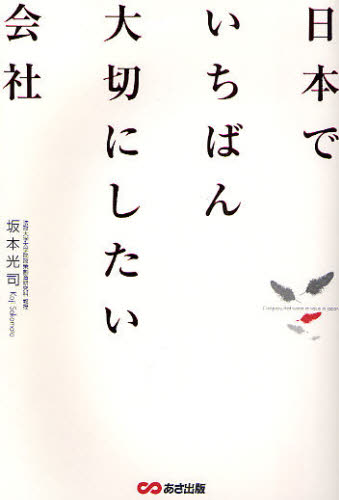 日本で
いちばん
大切にしたい
会社
法政大学大学院政策創造研究科 教授
坂本光司 Koji Sakamoto
あさ出版